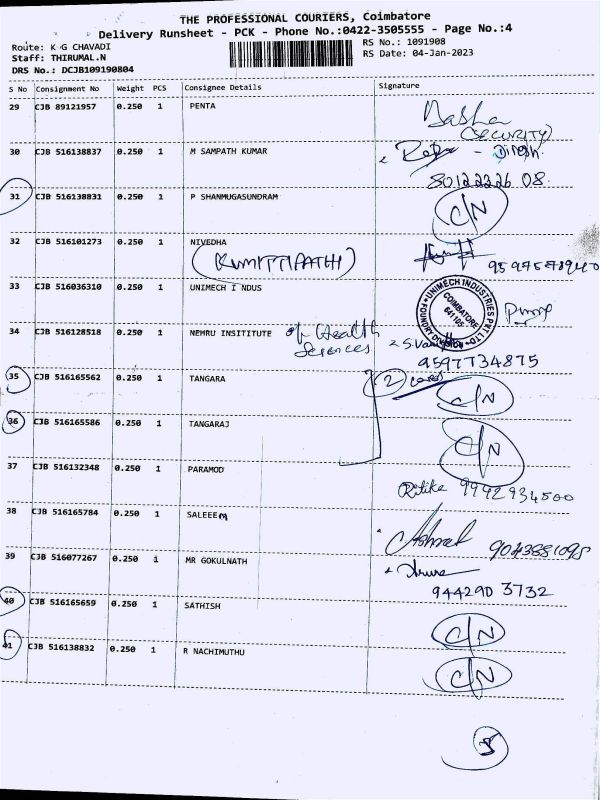 THE PROFESSIONAL COURIERS, Coimbatore
Delivery Runsheet - PCK - Phone No.:0422-3505555 - Page No.:4
Route: K G CHAVADI
RS No.: 1091908
Staff: THIRUMAL.N
RS Date: 04-Jan-2023
DRS No.: DCJB109190804
S No Consignment No Weight PCS Consignee Details Signature
29 CJB 89121957 0.250 1 PENTA
(SECURITY)
30 CJB 516138837 0.250 1 M SAMPATH KUMAR - Dinesh
8012222608
31 CJB 516138831 0.250 1 P SHANMUGASUNDRAM C/N
32 CJB 516101273 0.250 1 NIVEDHA
(KUMITTIPATHI)
33 CJB 516036310 0.250 1 UNIMECH I NDUS
UNIMECH INDUSTRIES PVT LTD
COIMBATORE
641 105
34 CJB 516128518 0.250 1 NEHRU INSITITUTE of Health
Sciences
9597734875
35 CJB 516165562 0.250 1 TANGARA 2 C/N
36 CJB 516165586 0.250 1 TANGARAJ C/N
37 CJB 516132348 0.250 1 PARAMOD
Ritika 9992934500
38 CJB 516165784 0.250 1 SALEEEM
Ashraf 9043881095
39 CJB 516077267 0.250 1 MR GOKULNATH
944290 3732
40 CJB 516165659 0.250 1 SATHISH C/N
41 CJB 516138832 0.250 1 R NACHIMUTHU C/N